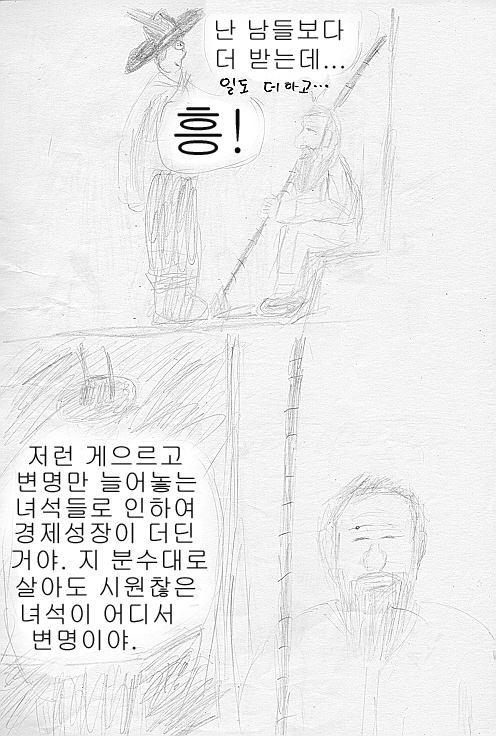 난 남들보다
더 받는데...
일도 더하고...
흥!
저런 게으르고
변명만 늘어놓는
녀석들로 인하여
경제성장이 더딘
거야. 지 분수대로
살아도 시원찮은
녀석이 어디서
변명이야.